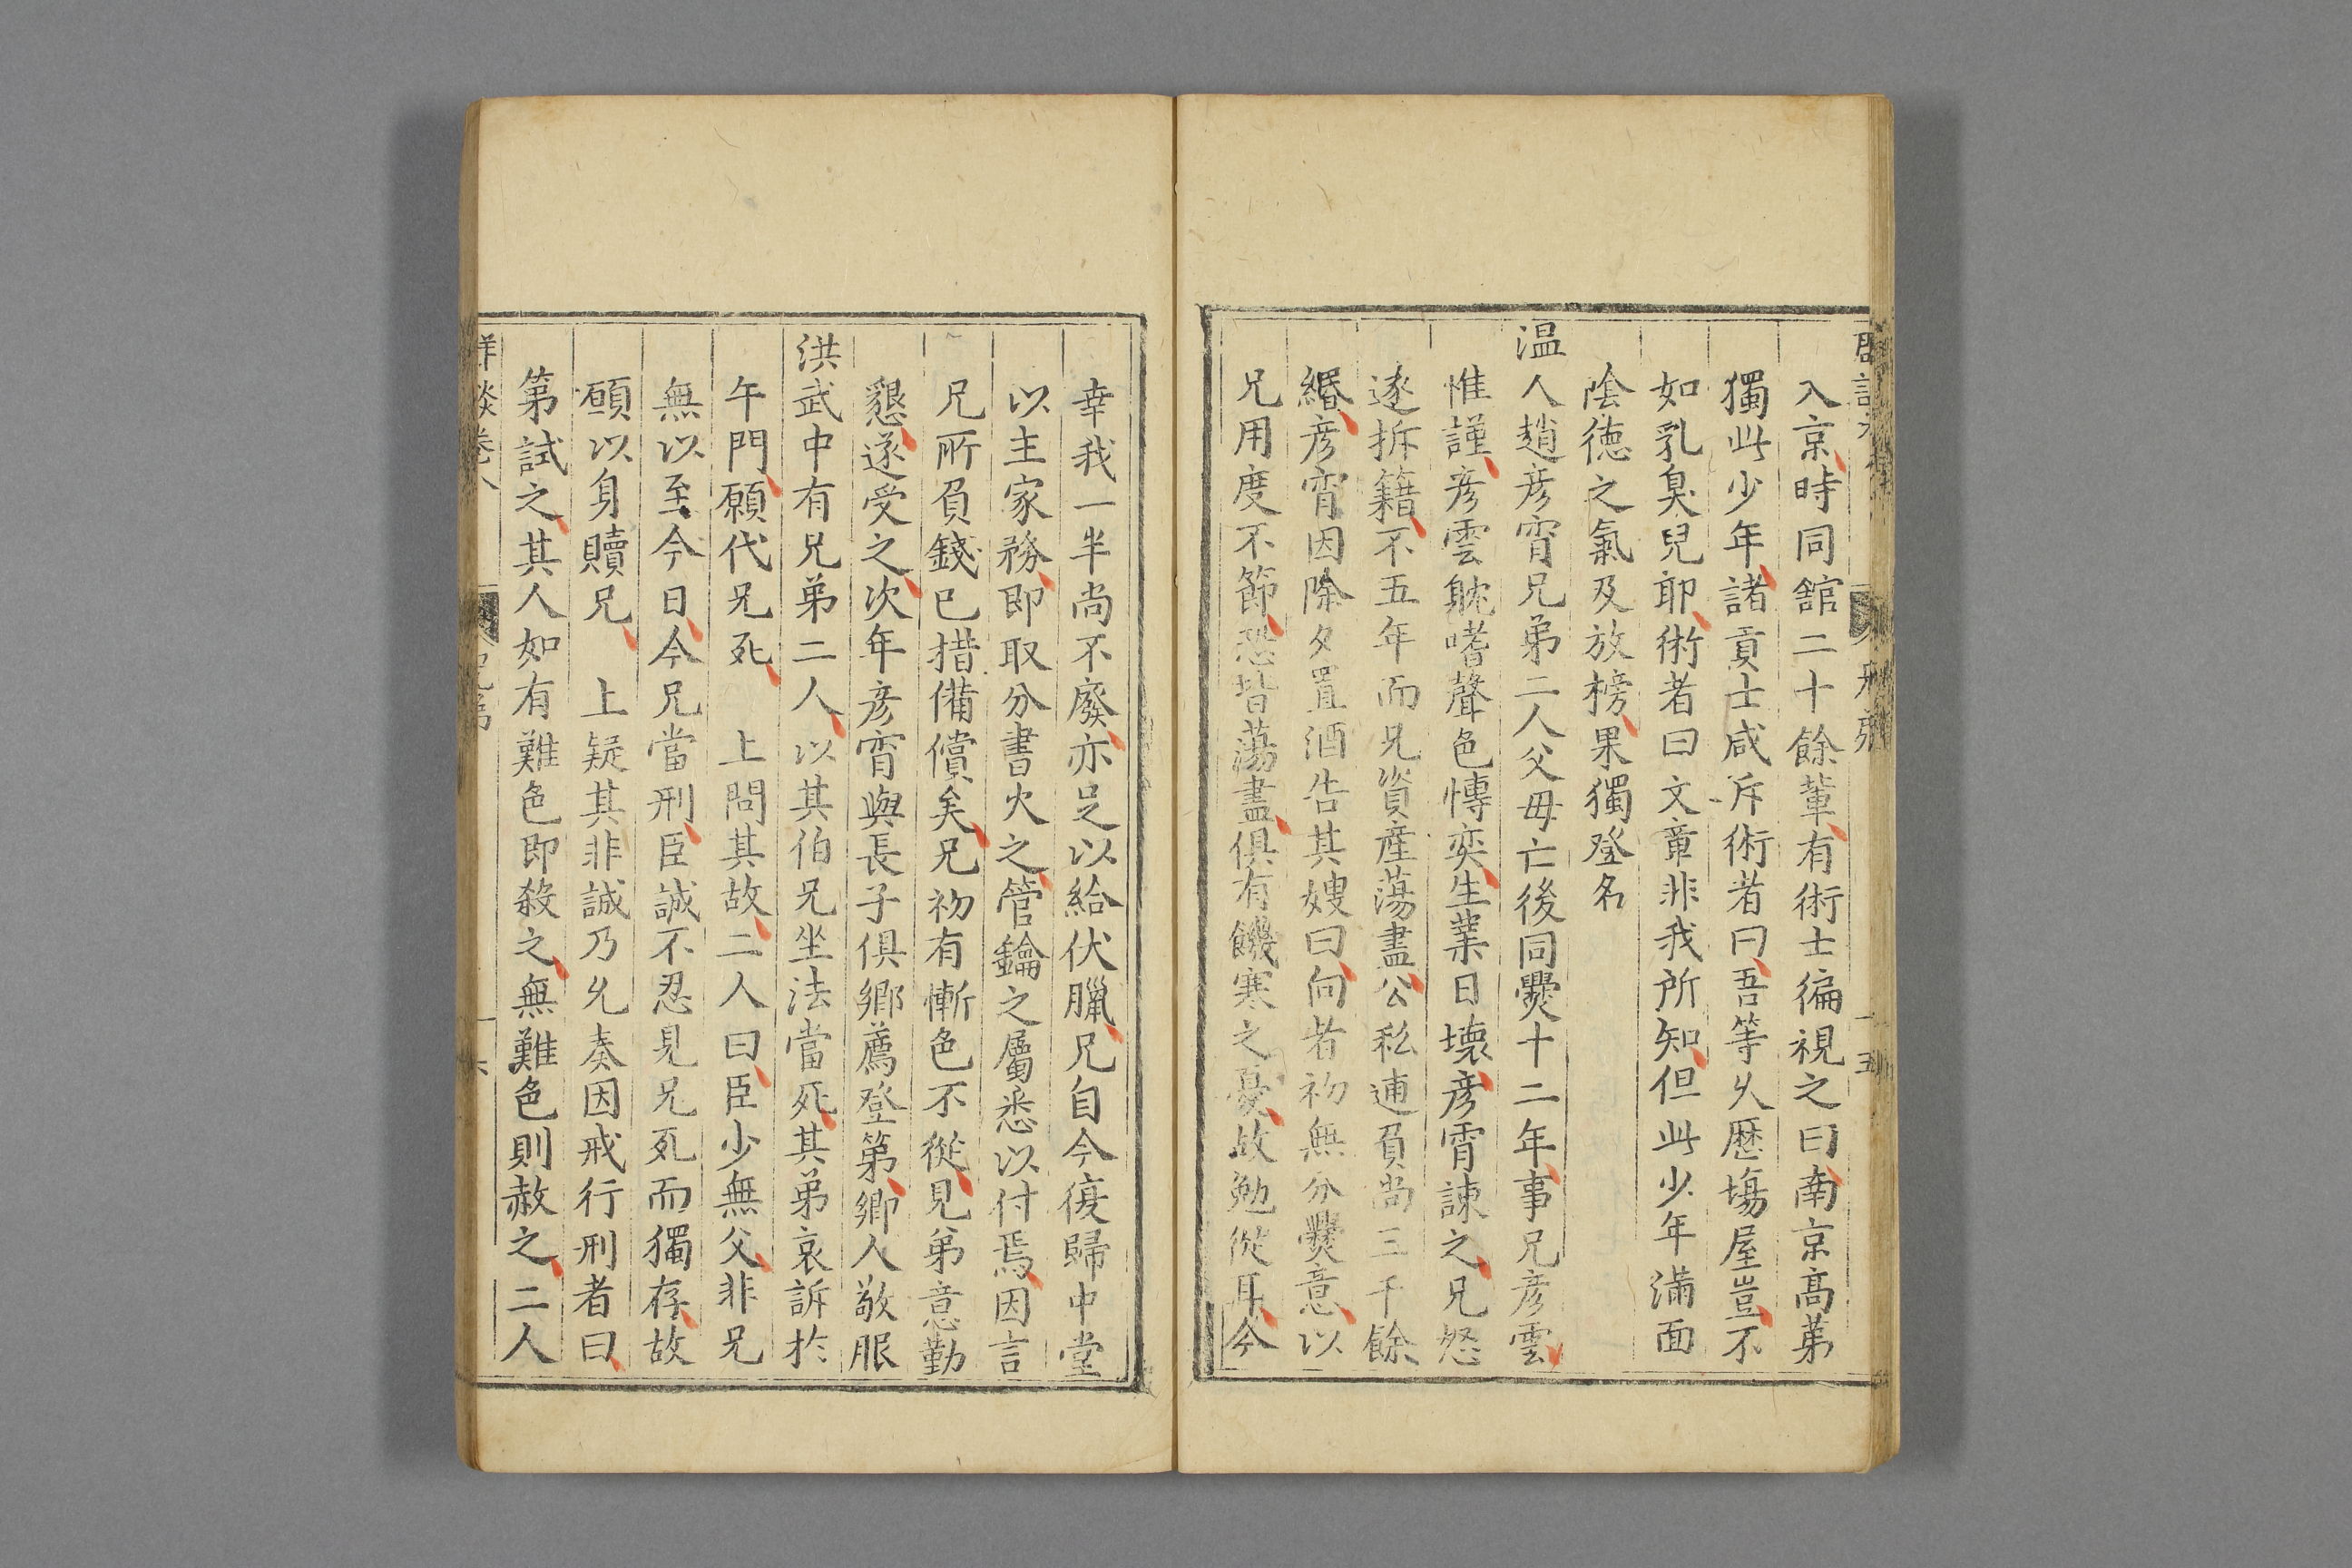 入京時同舘二十餘輩有術士徧視之曰南京髙苐
獨此少年諸貢士咸斥術者曰吾等乆歴塲屋豈不
如乳臭兒耶術者曰文章非我所知但此少年滿面
陰德之氣及放榜果獨登名
温人趙彦霄兄弟二人父毋亡後同㸑十二年事兄彦雲
惟謹彦雲躭嗜聲色慱奕生業日壊彦霄諫之兄怒
遂拆籍不五年而兄資產蕩盡公私逋負尚三千餘
緡彦霄因除夕置酒告其嫂曰向者初無分㸑意以
兄用度不節恐皆蕩盡俱有饑寒之憂故勉從耳今
幸我一半尚不廢亦足以給伏臘兄自今復歸中堂
以主家務即取分書火之管鑰之屬悉以付焉因言
兄所負錢已措備償矣兄初有慚色不從見弟意勤
懇遂受之次年彦霄與長子俱鄉薦登第鄉人敬服
洪武中有兄弟二人以其伯兄坐法當死其弟哀訴扵
午門願代兄死 上問其故二人曰臣少無父非兄
無以至今日今兄當刑臣誠不忍見兄死而獨存故
願以身贖兄 上疑其非誠乃允奏因戒行刑者曰
第試之其人如有難色即殺之無難色則赦之二人
卷八